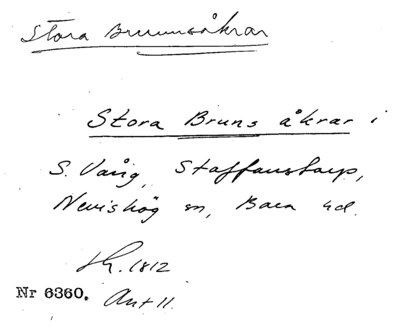 Stora Brunnsåkrar
Stora Bruns åkrar i
S. Vång, Staffanstorp,
Nevishög sn, Bara hd.
Sk. 1812
Nr 6360. Akt 11.